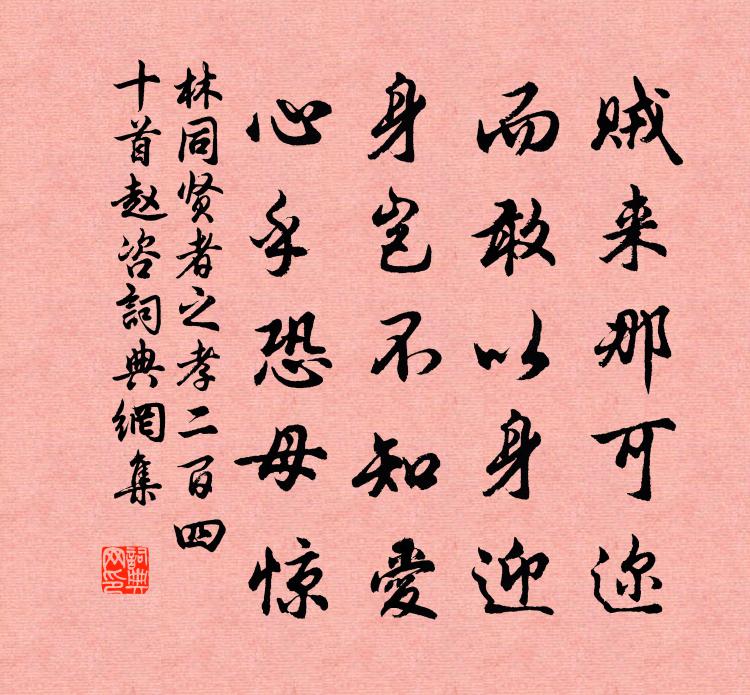 贼来那可迩
而敢以身迎
身岂不知爱
心乎恐母惊
林同贤者之孝二百四
十首赵咨詞典網集
詞典网印